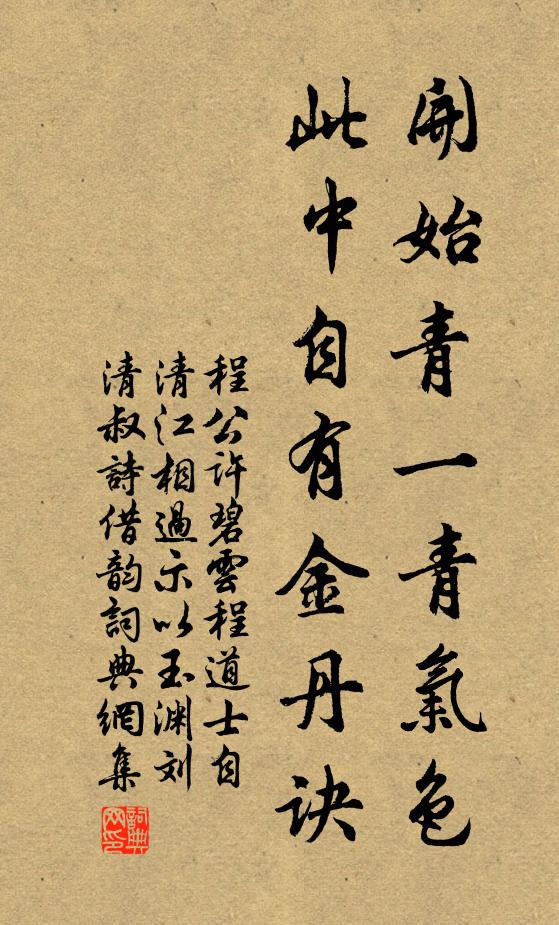 開始青一青氣色
此中自有金丹訣
程公許碧雲程道士自
清江相過示以玉淵刘
清叔詩借韵詞典網集
詞典网印